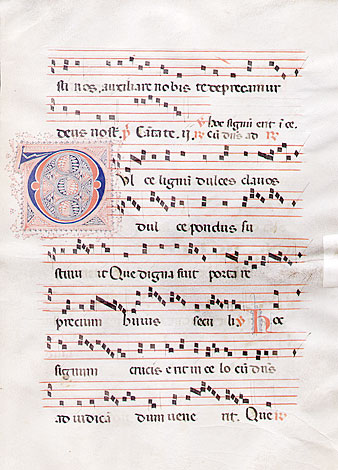 sti nos, auxiliare nobis te deprecamur
deus nost. Cātate. ij.
℣ hoc signū erit ī ce.
cū dn̄s ad
Dul ce lignū dulces clavos
dul ce pondus su
stinu it Que digna fuit porta re
precium huius secu li ℣ hoc
signum crucis erit in ce lo cū dn̄s
ad iudicā dum vene rit. Que